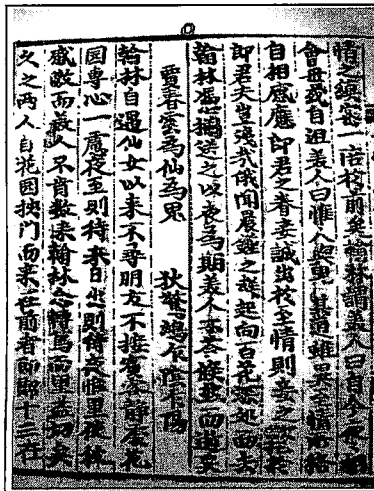 情之縝密一倍於前矣翰林謂美人曰自今夜相
會毋或自沮美人曰惟人與鬼其道雖異至情所格
自相感應郎君之眷妾誠出於至情則妾之欲托
郎君夫豈淺哉俄聞晨鍾之聲起向百花深處而去
翰林憑欄送之以夜為期美人不答倏然而逝矣
賈春雲為仙為鬼 狄驚鴻乍陰乍陽
翰林自遇仙女以來不尋朋友不接賓客靜處花
園專心一慮夜至則待來日出則待夜惟望
感激而美人不肯數來翰林念轉篤而望益切矣
久之兩人自花園挾門而來在前者即鄭十三在